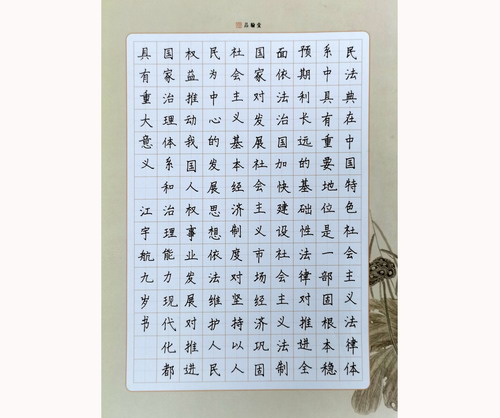 品翰堂
民法典在中国特色社会主义法律体
系中具有重要地位是一部固根本稳
预期利长远的基础性法律对推进全
面依法治国加快建设社会主义法制
国家对发展社会主义市场经济巩固
社会主义基本经济制度对坚持以人
民为中心的发展思想依法维护人民
权益推动我国人权事业发展对推进
国家治理体系和治理能力现代化都
具有重大意义 江宇航九岁书